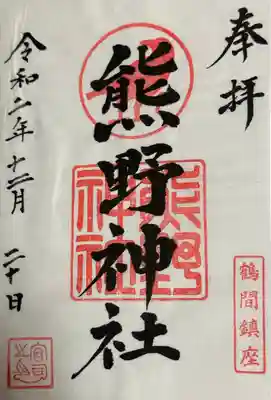 奉拝
鶴間鎮座
熊野神社
熊野
神社
令和二年十二月二十日